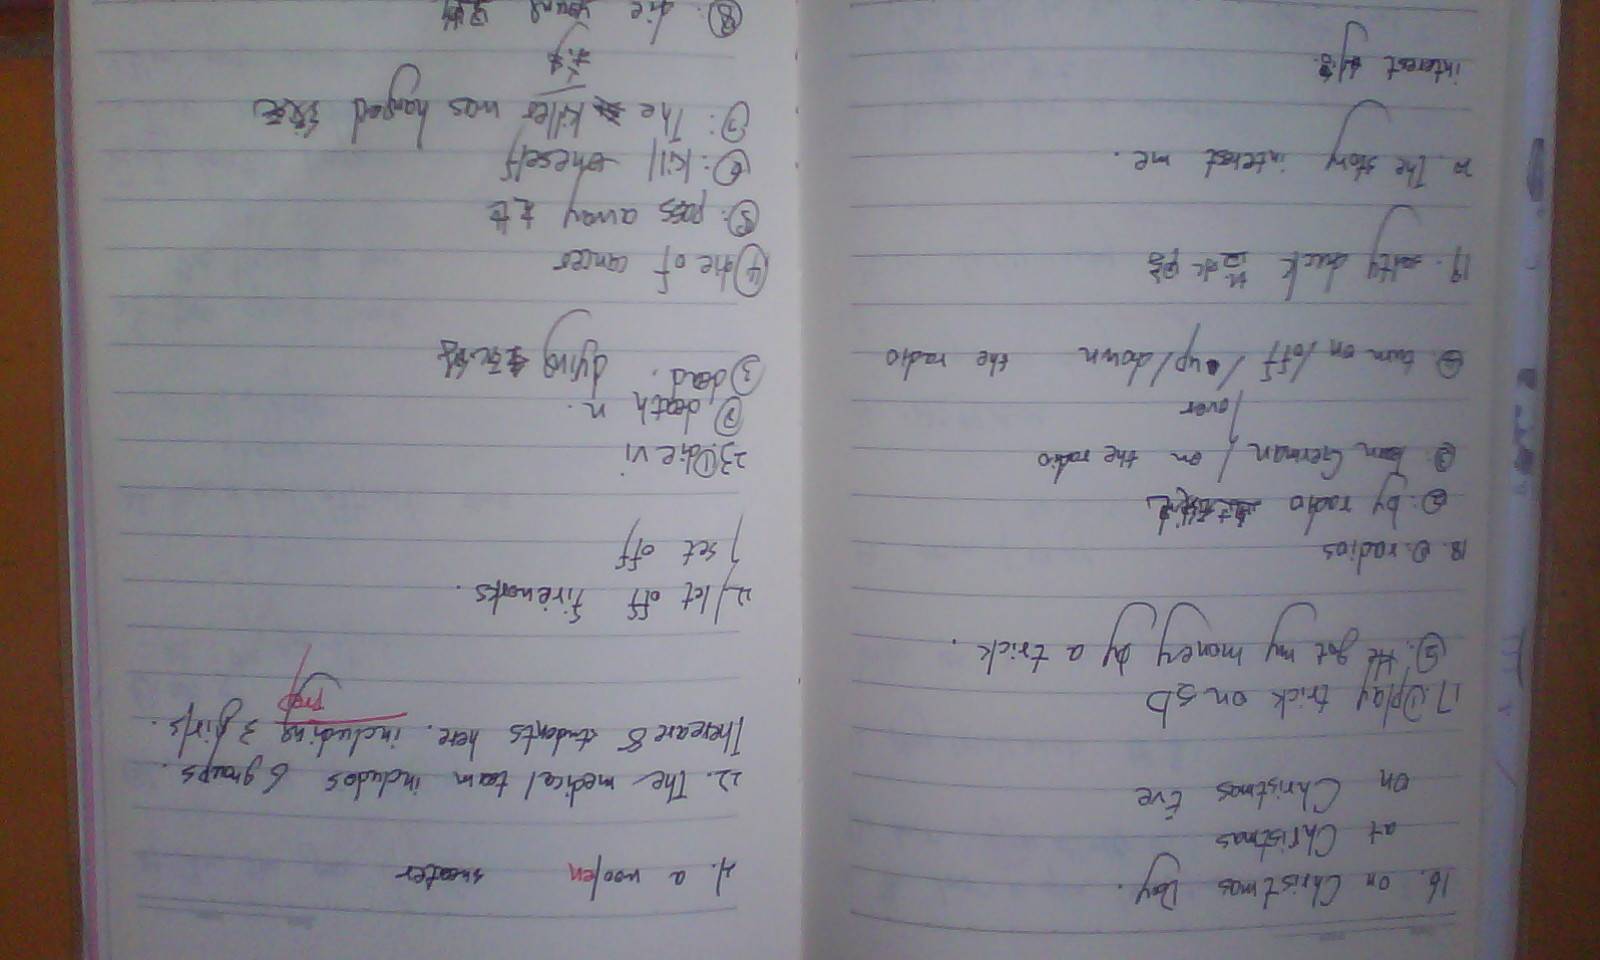 16. on Christmas Day.
at Christmas
on Christmas Eve
17. ①play trick on sb
②. He got my money by a trick.
18. ①. radios
②. by radio
③. German / on the radio
/over
④. turn on/off/up/down the radio
19. duck
20. The story interest me.
interest
21. a woolen sweater
22. The medical team includes 6 groups.
There are 8 students here. including 3 girls.
prep
let off fireworks.
/set off
23.①die vi
②death n.
③dead. dying
④die of cancer
⑤: pass away 去世
⑥: kill oneself
⑦: The killer was hanged
⑧: die young